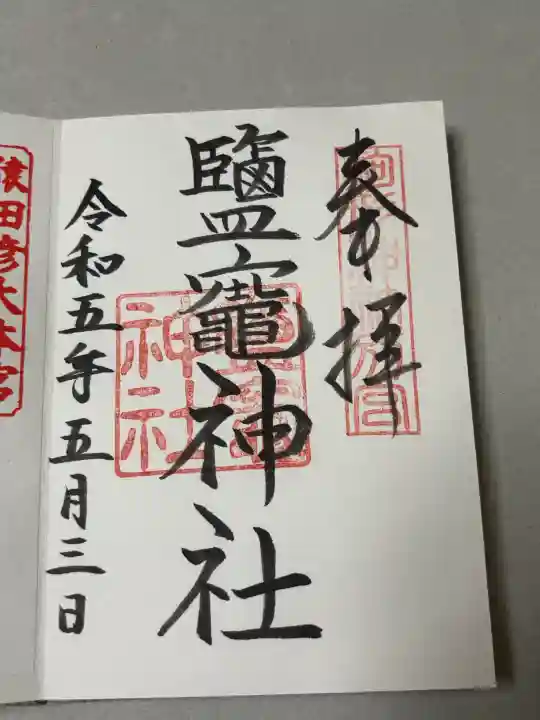 奉拝
鹽竈神社
令和五年五月三日
神社
猿田彦大本宮